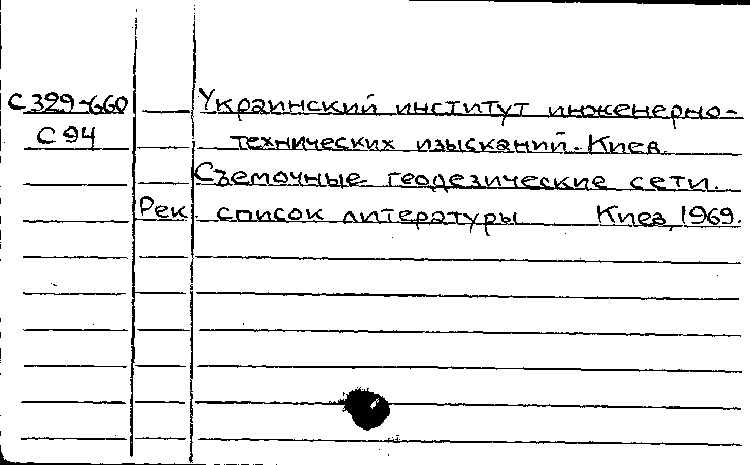 С329-660 Украинский институт инженерно-
С94 технических изысканий. Киев.
Съемочные геодезические сети.
Рек. список литературы Киев, 1969.